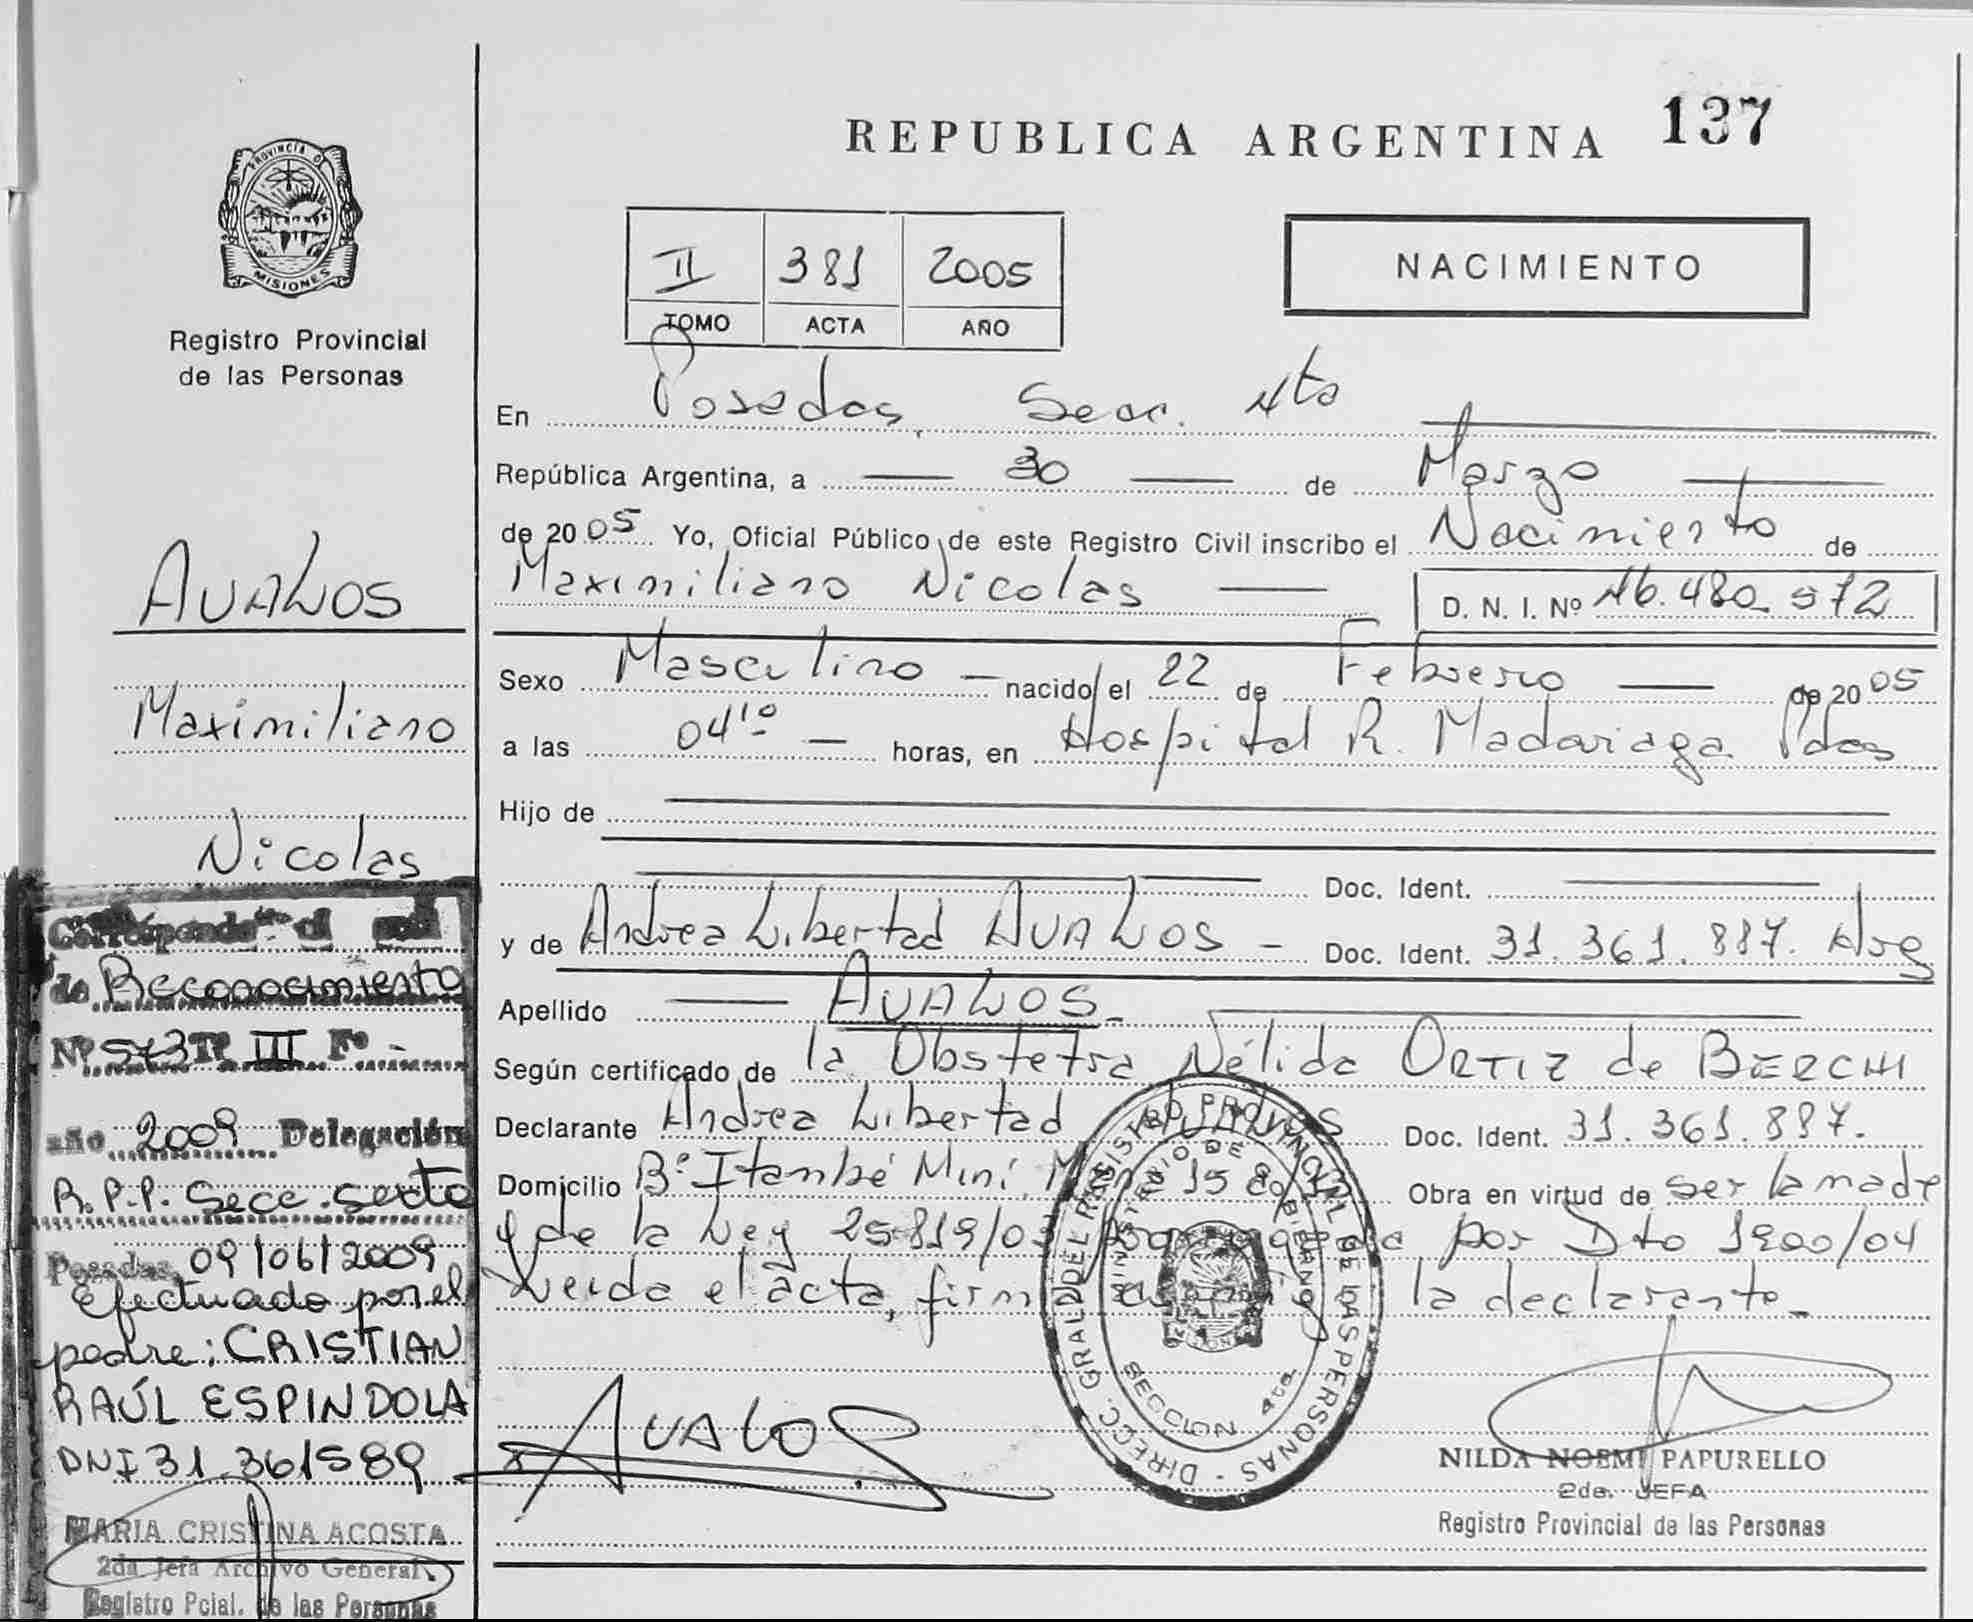 REPUBLICA ARGENTINA 137
PROVINCIA D
MISIONES
Registro Provincial
de las Personas
II 381 2005
TOMO ACTA AÑO
NACIMIENTO
En Posadas, Secc. 4ta
República Argentina, a 30 de Marzo
de 2005 Yo, Oficial Público de este Registro Civil inscribo el Nacimiento de
Maximiliano Nicolas D. N. I. Nº 46.480.972
Sexo Masculino nacido el 22 de Febrero de 2005
a las 04¹⁰ horas, en Hospital R. Madariaga Pdas
Hijo de
Doc. Ident.
y de Andrea Libertad AVALOS - Doc. Ident. 31.361.887. Arg
Apellido AVALOS
Según certificado de la Obstetra Nélida ORTIZ de BERCHI
Declarante Andrea Libertad Doc. Ident. 31.361.887.
Domicilio Bº Itambé Miní, 15 Obra en virtud de ser la madre
y de la Ley 25.819/03 por Dto 1900/04
Leída el acta, firma la declarante.
AVALOS
DIRECC. GRAL. DEL REGISTRO PROVINCIAL DE LAS PERSONAS
MINISTERIO DE GOBIERNO
SECCION 4ta
NILDA NOEMI PAPURELLO
2da. JEFA
Registro Provincial de las Personas
AVALOS
Maximiliano
Nicolas
Corresponde
de Reconocimiento
Nº 573 Tº III Fº -
año 2009 Delegación
R.P.P. Secc. sexta
Posadas, 09/06/2009
Efectuado por el
padre: CRISTIAN
RAÚL ESPINDOLA
DNI 31.361589
MARIA CRISTINA ACOSTA
2da Jefa Archivo General
Registro Pcial. de las Personas